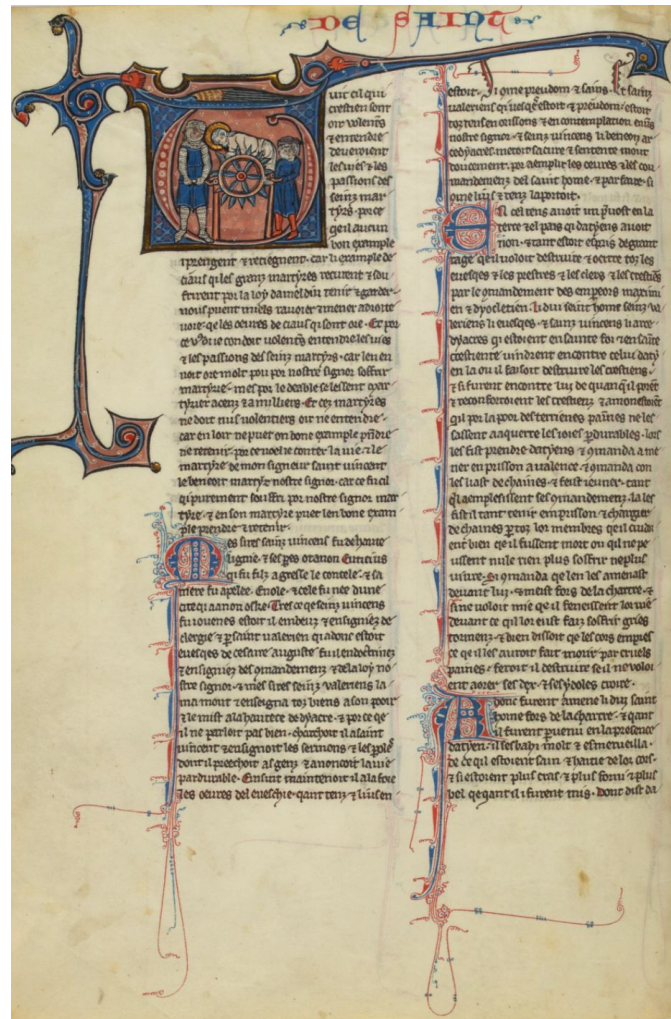 DE SAINT
uit cil qui
crestien sont
oir volentiers
& entendre
deueroient
les uies & les
passions des
seinz mar
tyrs. por ce
qe il aucun
bon example
i prengent & retiegnent. car li example de
ciaus qi les granz martyres recurent & sou
frirent por la loy dameldiu tenir & garder.
nous puent miels rauoier & mener a droite
uoie. qe les oeures de ciaus qi sont ore. Et por
ce doit uolentiers entendre les uies
& les passions des seinz martyrs. car len en
uoit ore molt pou por nostre signor soffrir
martyre. mes por le deable se lessent mar
tyrier a cenz & a milliers. Et cez martyres
ne doit nus volentiers oir ne entendre.
car en loir ne puet on bone example prendre
ne retenir. por ce uoel ie conter la uie & le
martyre de mon signeur saint uincent
le benoit martyr nostre signor. car ce fu cil
qi purement souffri por nostre signor mar
tyre. & en son martyre puet len bone exam
ple prendre & retenir.
Mes sires sainz uincens fu de haute
lignie. & ses peres ot a non Euticius
qi fu filz agresse le contele. & sa
mere fu apelee. Enole. & cele fu nee dune
cite qi a a non oske. Tres ce qe seinz uincens
fu iouenes estoit il embeuz & ensigniez de
clergie & par saint ualerien qi adonc estoit
euesqes de cesaire auguste fu il endoctrinez
& ensigniez des comandemenz & de la loy no
stre signor. & mes sires seinz ualeriens la
ma mout & enseigna toz biens a son pooir
& le mist a la hautece de dyacre. & por ce qe
il ne parloit pas bien. charchoit il a saint
uincent & ensignoit les sermons & les
dont il preechoit as genz & anoncoit la uie
pardurable. Ensint maintenoit il a la foie
les oeures del eueschie. qant tenz & liuis en
estoit. Si ome preudom & sains. Et sainz
ualeriens qi uesqes estoit & preudom. estoit
toz tens en orisons & en contemplation enuers
nostre signor. & seinz uincens li beneoiz ar
cedyacres. metoit sa cure & sentente mout
doucement. por aemplir les oeures & les com
mandemenz del saint home. & par faire. si
ome lius & tenz la portoit.
En cel tens auoit un prouost en la
terre & el pais qi datyens auoit
non. & tant estoit espris de grant
rage qe il uoloit destruire & ocirre toz les
euesqes & les prestres & les clers & les crestiens
par le comandement des empereors maximi
en & dyocletien. Li diu saint home seinz va
leriens li euesqes. & sainz uincens li arce
dyacres qi estoient en sainte foi & en sainte
crestiente uindrent encontre celui daty
en la ou il faisoit destruire les crestiens.
& si furent encontre lui de quanqe il porent
& reconfortoient les crestiens & amonestoient
qe il por la poor des terrienes paines ne les
sassent a aquerre les ioies pardurables. lors
les fist prendre datyens & comanda a me
ner en prison a ualence. & comanda con
les liast de chaines. & feist ieuner. tant
qe il aemplesissent ses comandemenz. la les
fist il tant tenir en prison & chargier
de chaines par toz lor membres qe il cuidi
ent bien qe il fussent mort ou qil ne pe
ussent nule rien plus soffrir ne plus
uiure. Si comanda qe len les amenast
deuant lui. & meist fors de la chartre. &
si ne uoloit mie qe il fenessent lor uie
deuant ce qe il lor eust faiz soffrir griés
tormenz. & bien dissoit qe les cors
ce qe il les auroit fait morir par cruels
paines. feroit il destruire se il ne voloi
ent aorer ses dex & ses ydoles croire.
Adonc furent amene li diu saint
home fors de la chartre. & qant
il furent uenu en la presence
datyen. il ses bahi molt & esmerueilla.
de ce qe il estoient sain & haitie de lor cors.
& si estoient plus cras & plus forni & plus
bel qe qant il i furent mis. Dont dist da